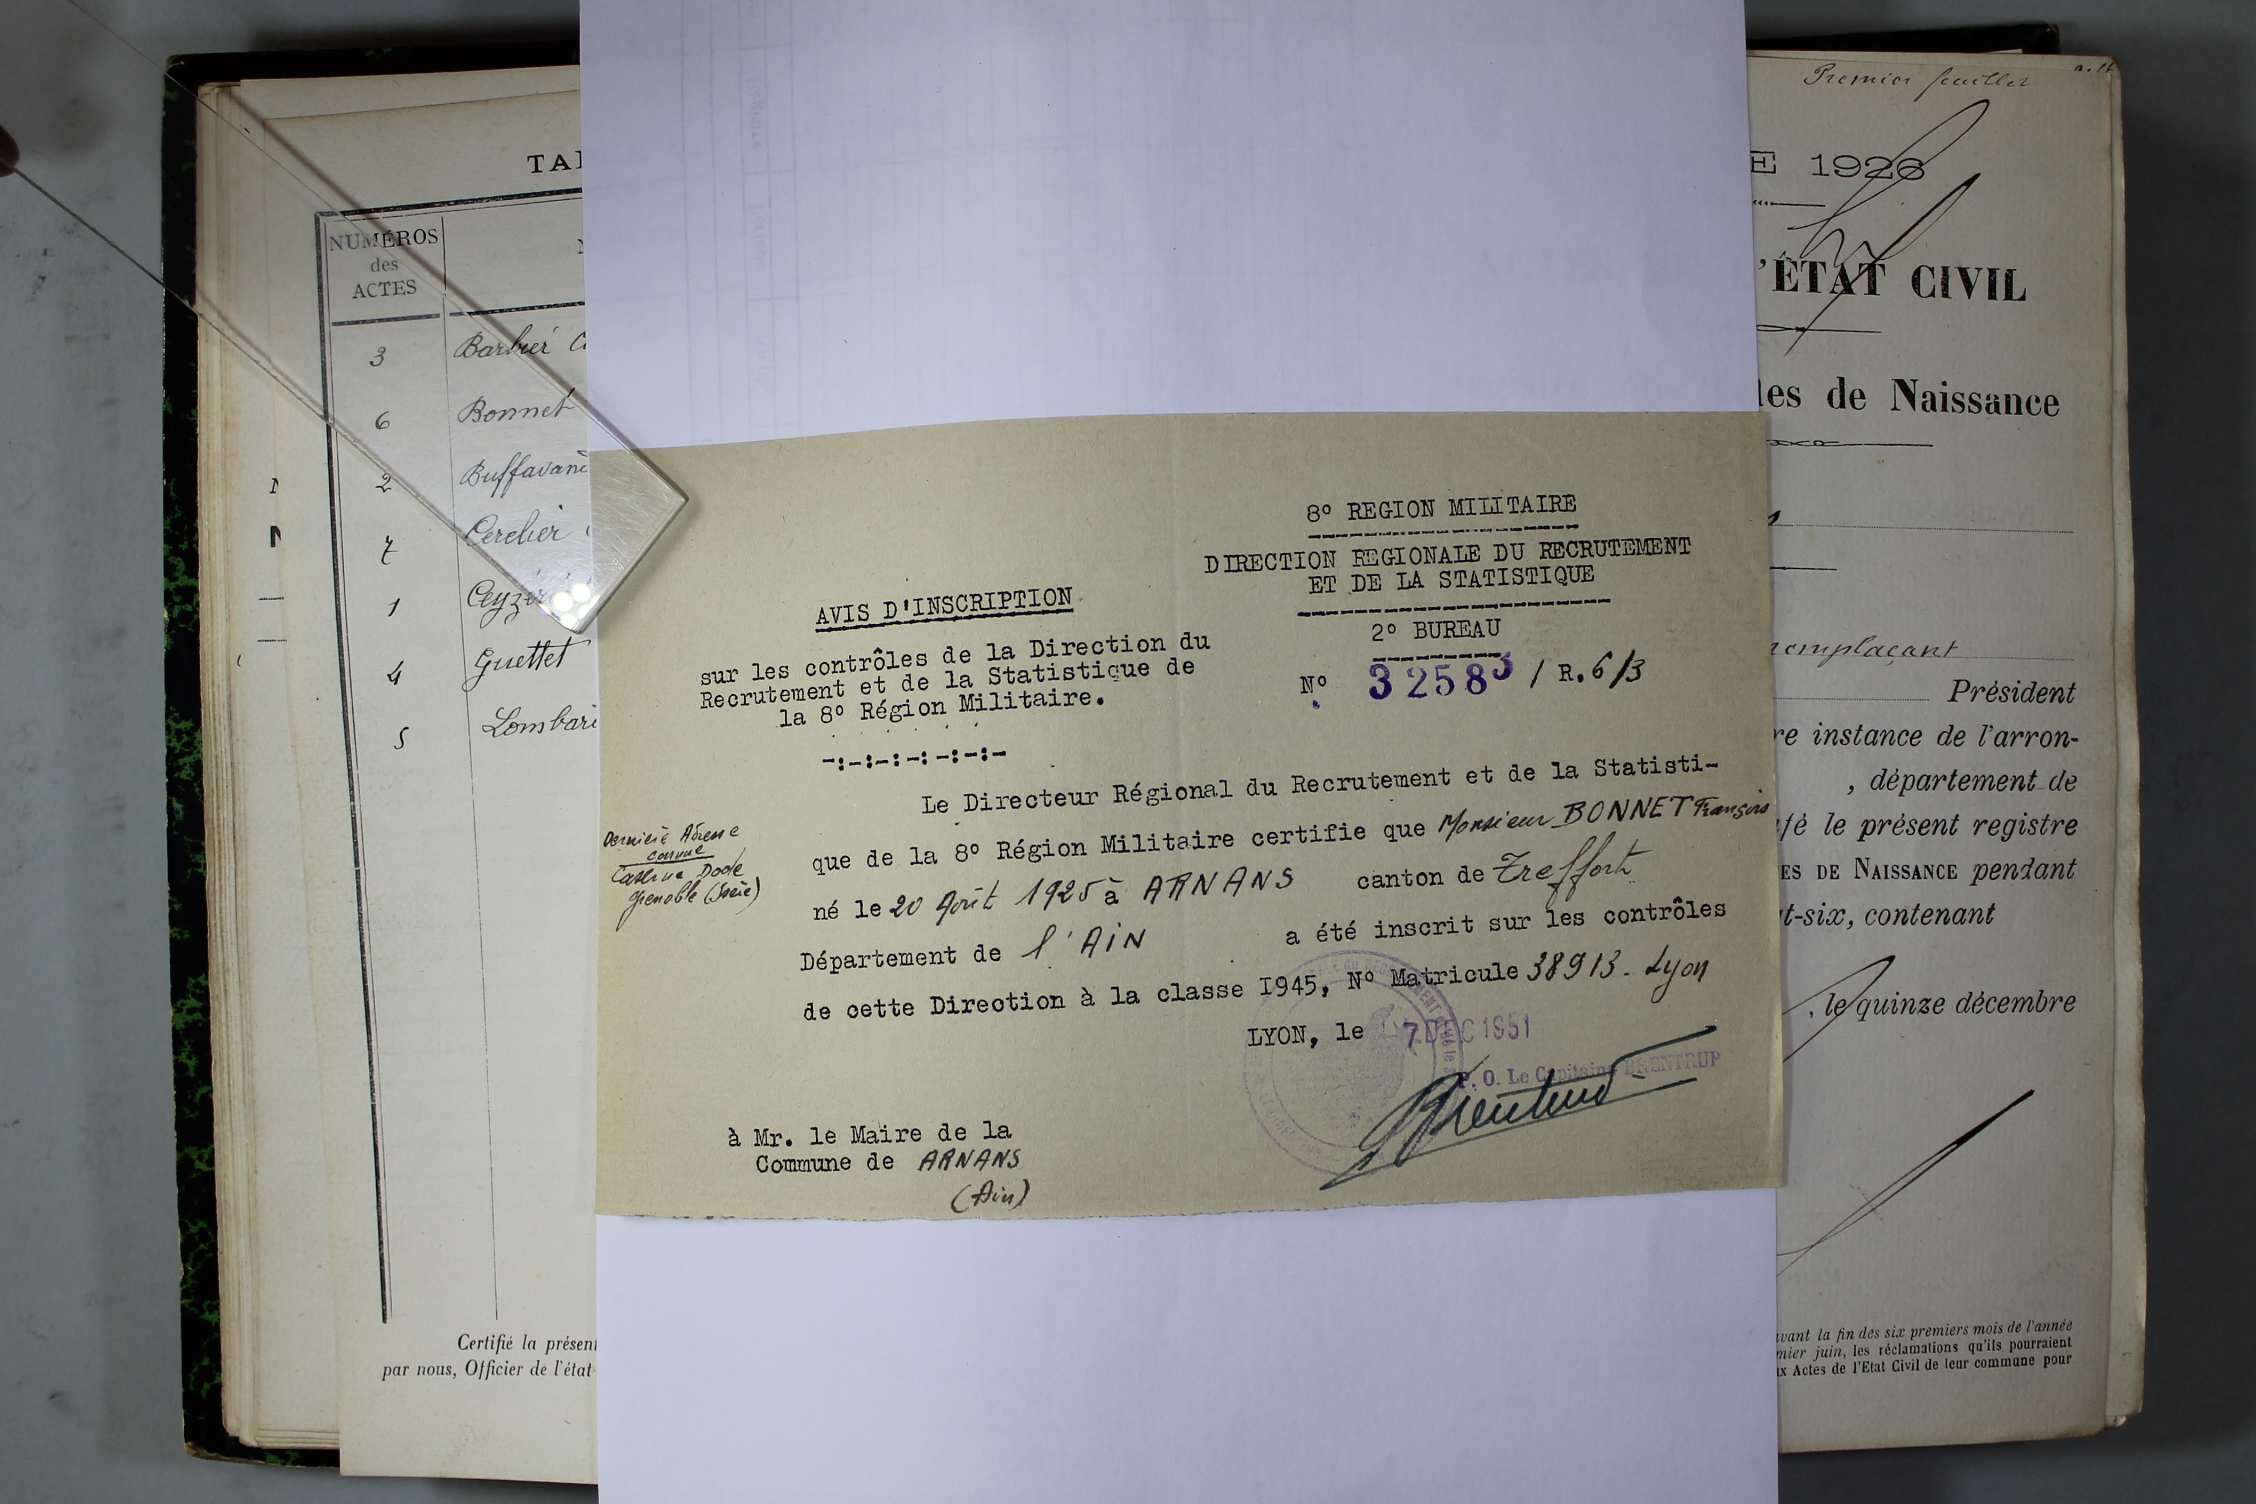 TA
NUMÉROS
des
ACTES
3 Barbier
6 Bonnet
2
7 Cerclier
1
4 Guettet
5
Certifié la présen
par nous, Officier de l'état-
8° REGION MILITAIRE
DIRECTION REGIONALE DU RECRUTEMENT
ET DE LA STATISTIQUE
2° BUREAU
N° 32583 / R.6/3
AVIS D'INSCRIPTION
sur les contrôles de la Direction du
Recrutement et de la Statistique de
la 8° Région Militaire.
-:-:-:-:-:-:-
Le Directeur Régional du Recrutement et de la Statisti-
que de la 8° Région Militaire certifie que Monsieur BONNET François
né le 20 Août 1925 à ARNANS canton de Treffort
Département de l'AIN a été inscrit sur les contrôles
de cette Direction à la classe I945, N° Matricule 38913 - Lyon
LYON, le 7 DEC 1951
P. O. Le Capitaine BRENTRUP
Dernière Adresse
connue
Caserne Dode
Grenoble (Isère)
à Mr. le Maire de la
Commune de ARNANS
(Ain)
Premier feuillet
E 1926
'ÉTAT CIVIL
les de Naissance
remplaçant
Président
re instance de l'arron-
, département de
fé le présent registre
ES DE NAISSANCE pendant
t-six, contenant
, le quinze décembre
avant la fin des six premiers mois de l'année
mier juin, les réclamations qu'ils pourraient
ux Actes de l'Etat Civil de leur commune pour